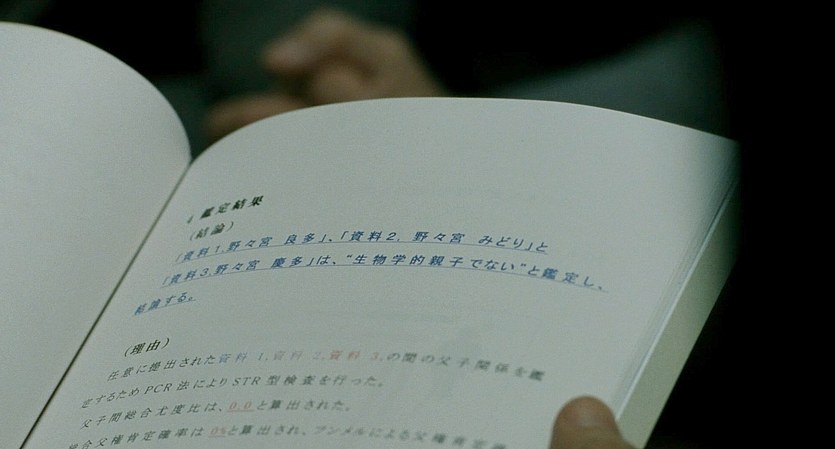 4 鑑定結果
(結論)
「資料1,野々宮 良多」、「資料2, 野々宮 みどり」と
「資料3,野々宮 慶多」は、“生物学的親子でない”と鑑定し、
結論する。
(理由)
任意に提出された資料 1,資料 2,資料 3,の間の父子関係を鑑
定するため PCR 法により STR 型検査を行った。
父子間総合尤度比は、0.0 と算出された。
総合父権肯定確率は 0%と算出され、フンメルによる父権肯定